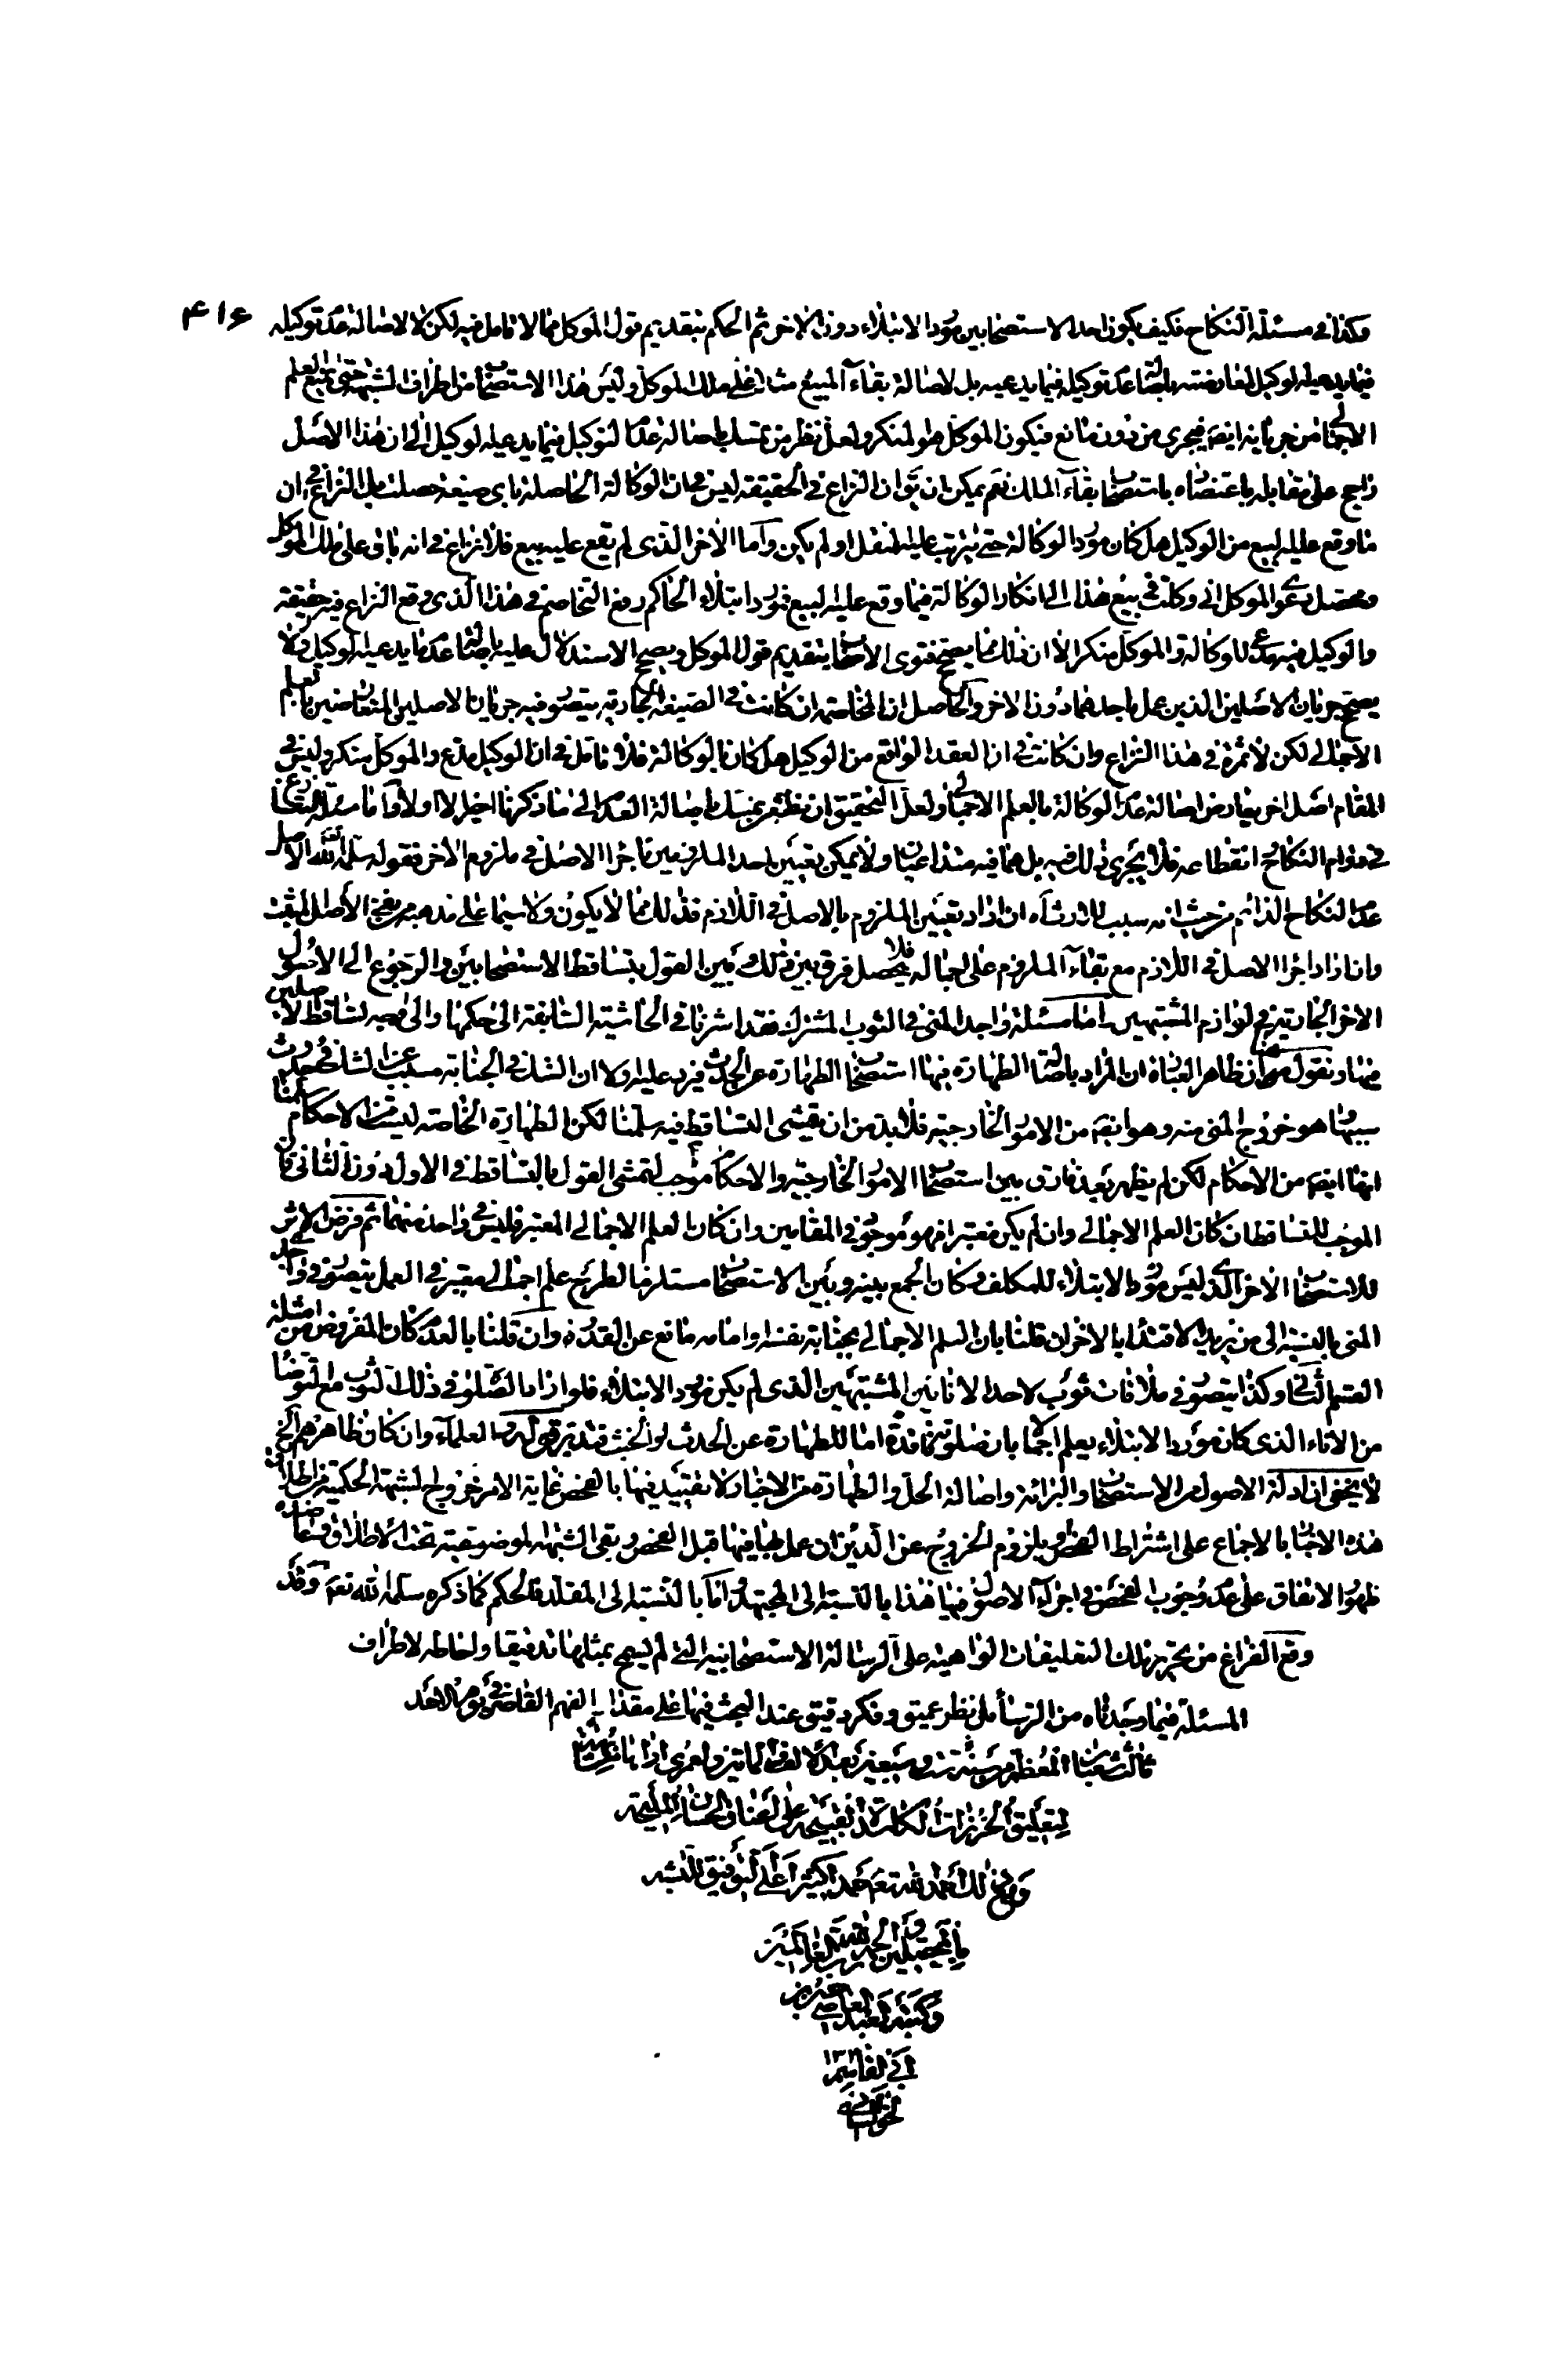 وكذا في مسئلة النكاح فكيف يكون احد الاستصحابين مورد الابتلاء دون الاخر ثم الحكم بتقديم قول الموكل مما لا تامل فيه لكن لا لاصالة عدم توكيله ۴۱۶
فيما يدعيه الوكيل لمعارضته باصالة عدم توكيله فيما يدعيه بل لاصالة بقاء المبيع مثلا على ملك الموكل وليس هذا الاستصحاب من اطراف الشبهة حتى يمنع العلم
الاجمالي من جريانه ايضا فيجري من دون مانع فيكون الموكل هو المنكر ولعل نظر من تمسك باصالة عدم التوكيل فيما يدعيه الوكيل الى ان هذا الاصل
راجح على مقابله باعتضاده باستصحاب بقاء الملك نعم يمكن ان يق ان النزاع في الحقيقة ليس في ان الوكالة الحاصلة باى صيغة حصلت بل النزاع في ان
ما وقع عليه البيع من الوكيل هل كان مورد الوكالة حتى يترتب عليه النقل او لم يكن واما الاخر الذى لم يقع عليه بيع فلا نزاع في انه باق على ملك الموكل
ومحصل دعوى الموكل انى وكلت في بيع هذا الى انكار الوكالة فيما وقع عليه البيع فمورد ابتلاء الحاكم رفع التخاصم في هذا الذى وقع النزاع فيه حقيقة
والوكيل فيه مدع للوكالة والموكل منكر الا ان ذلك مما يصحح فتوى الاصحاب بتقديم قول الموكل ويصح الاستدلال عليه باصالة عدم ما يدعيه الوكيل ولا
يصحح جريان الاصلين الذين عمل باحدهما دون الاخر والحاصل ان المخاصمة ان كانت في الصيغة الجارية يتصور فيه جريان الاصلين المتعارضين بالعلم
الاجمالي لكن لا ثمرة في هذا النزاع وان كانت في ان العقد الواقع من الوكيل هل كان بالوكالة فلا تامل في ان الوكيل مدع والموكل منكر وليس في
المقام اصل اخر يعارض اصالة عدم الوكالة بالعلم الاجمالي ولعل التحقيق ان نظر من يتمسك باصالة العدم الى ما ذكرنا اخيرا لا اولا واما مسئلة التنازع
في دوام النكاح وانقطاعه فلا يجرى ذلك فيه بل هما فيه متداعيان ولا يمكن تعيين احد الملزومين باجراء الاصل في ملزوم الاخر فقوله سلمه الله الاصل
عدم النكاح الدائم من حيث انه سبب للارث اه ان اراد تعيين الملزوم بالاصل في اللازم فذلك مما لا يكون ولا سيما على مذهبه من نفي الاصل المثبت
وان اراد اجراء الاصل في اللازم مع بقاء الملزوم على اجماله فلا يحصل فرق بين ذلك وبين القول بتساقط الاستصحابين والرجوع الى الاصول
الاخر الجارية في لوازم المشتبهين واما مسئلة واجد المنى في الثوب المشترك فقد اشرنا في الحاشية السابقة الى حكمها والى وجه تساقط الاصلين
فيها ونقول هنا ان ظاهر العبارة ان المراد باصالة الطهارة فيها استصحاب الطهارة عن الحدث فيرد عليه اولا ان الشك في الجنابة مسبب عن الشك في حدوث
سببها وهو خروج المنى منه وهو ايضا من الامور الخارجية فلا بد من ان يتمشى التساقط فيه سلمنا لكن الطهارة الخاصة ليست من الاحكام سلمنا
انها ايضا من الاحكام لكن لم يظهر بعد فارق بين استصحاب الامور الخارجية والاحكام موجب لتمشى القول بالتساقط في الاول دون الثانى فان
الموجب للتساقط ان كان العلم الاجمالى وان لم يكن معتبرا فهو موجود في المقامين وان كان العلم الاجمالى المعتبر فليس في واحد منهما ثم فرض الاثر
للاستصحاب الاخر الذى ليس مورد الابتلاء للمكلف وكان الجمع بينه وبين الاستصحاب مستلزما لطرح علم اجمالى معتبر في العمل يتصور في واجد
المنى بالنسبة الى من يريد الاقتداء بالاخر ان قلنا بان العلم الاجمالى بجنابة نفسه وامامه مانع عن القدوة وان قلنا بالعدم كان المفروض من امثلة
القسم الثاني وكذا يتصور في ملاقات ثوب لاحد الانائين المشتبهين الذى لم يكن مورد الابتلاء فلو اراد الصلوة في ذلك الثوب مع التوضا
من الاناء الذى كان مورد الابتلاء يعلم اجمالا بان صلوته فاقدة اما للطهارة عن الحدث او الخبث فتدبر قوله العلماء وان كان ظاهرهم الخ
لا يخفى ان ادلة الاصول من الاستصحاب والبرائة واصالة الحل والطهارة من الاخبار لا تقييد فيها بالفحص غاية الامر خروج الشبهة الحكمية من اطلاق
هذه الاخبار بالاجماع على اشتراط الفحص وبلزوم الخروج عن الدين ان عمل بها فيها قبل الفحص وبقى الشبهة الموضوعية تحت الاطلاق
ظهور الاتفاق على عدم وجوب الفحص في اجراء الاصول فيها هذا بالنسبة الى المجتهد واما بالنسبة الى المقلد فالحكم كما ذكره سلمه الله نعم وقد
وقع الفراغ من تحرير تلك التعليقات الواهية على الرسالة الاستصحابية التى لم يسمح بمثلها تدقيقا واحاطة لاطراف
المسئلة فيما وجدناه من الرسائل نظر عميق وفكر دقيق عند البحث فيها على مقدار الفهم القاصر في يوم الاحد
ثالث شعبان المعظم من سنة
لتعليق الخرزات على اعناق الحسان المليحة
ومع ذلك احمد الله تعم حمدا كثيرا على التوفيق للتشبه
بالمحصلين والحمد لله رب العالمين
وكتبه العبد العاصى
ابى القاسم